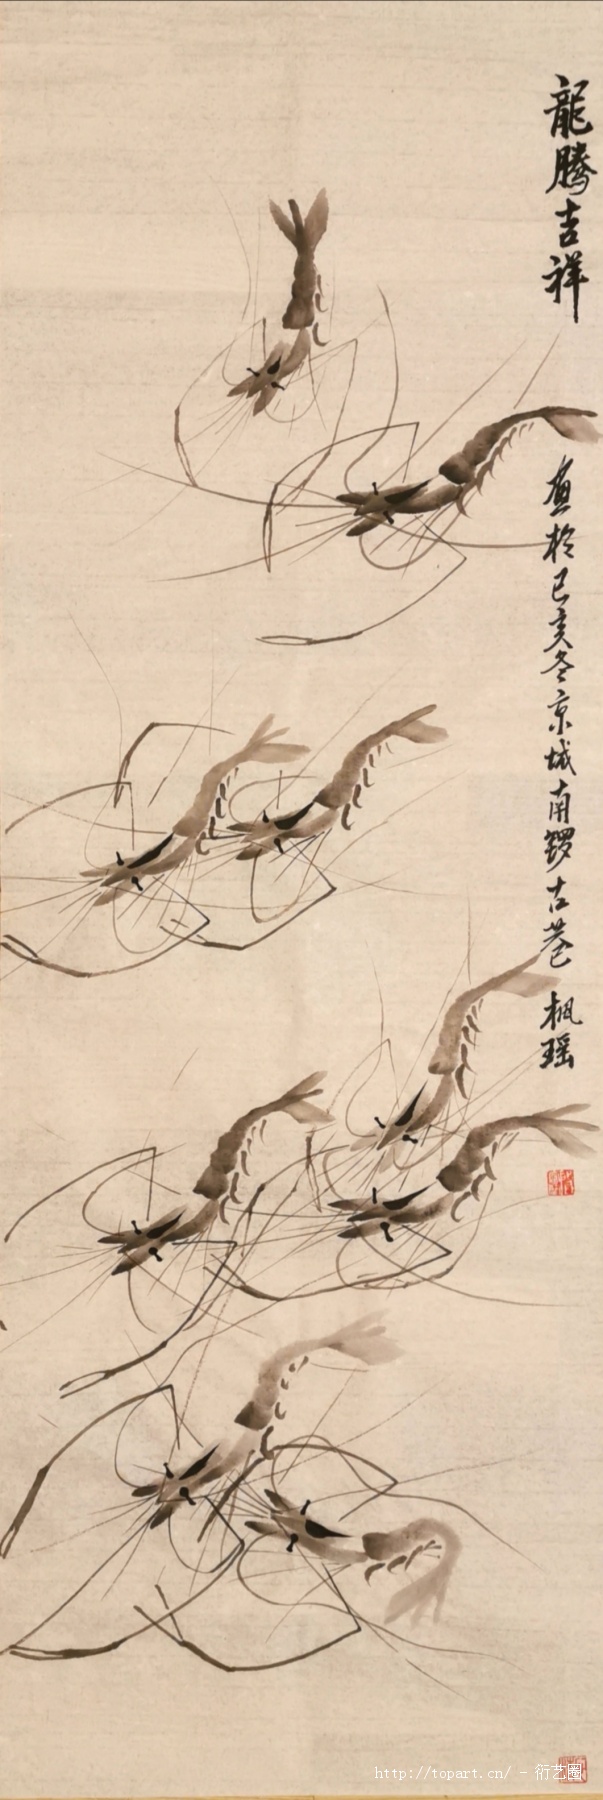 龍騰吉祥
畫於己亥冬京城南鑼古巷 楓瑶
http://topart.cn/ - 衍艺圈